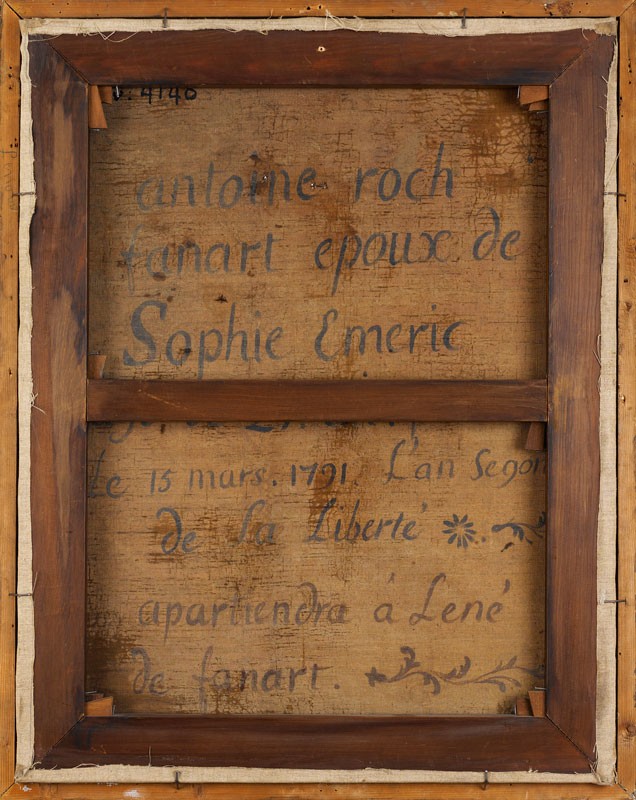 4140
antoine roch
fanart epoux de
Sophie Emeric
Le 15 mars. 1791. L'an Segon
de La Liberté
apartiendra á Lené
de fanart.